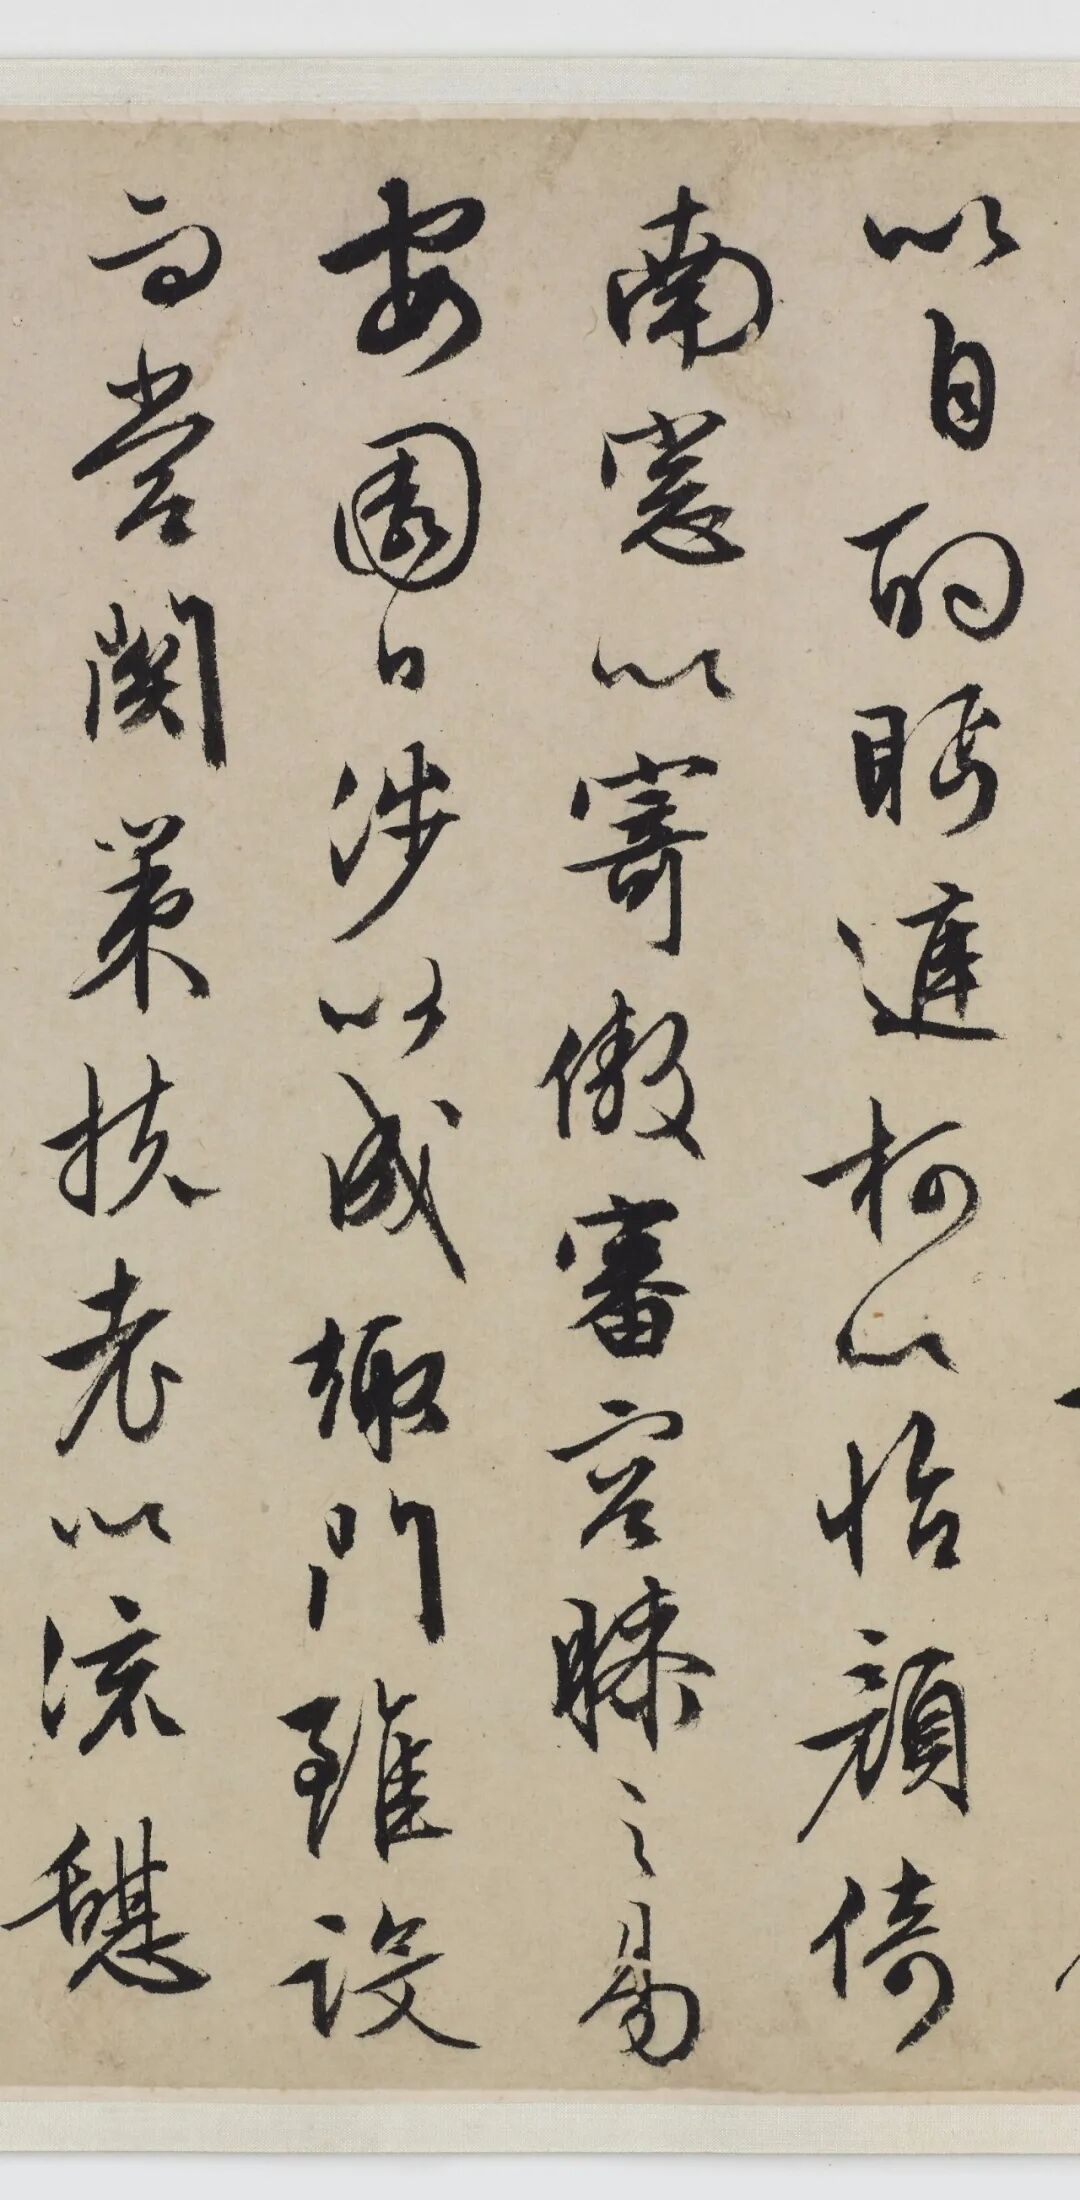 以自酌眄遲柯以怡顏倚
南窓以寄傲審容膝之易
安園日涉以成趣門雖設
而常關策扶老以流憩